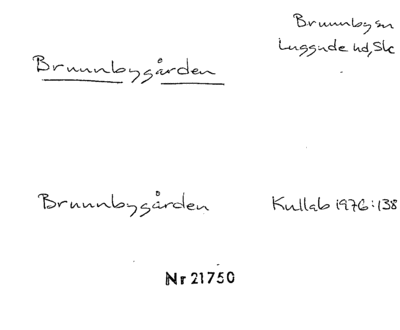 Brunnby sn
Luggude hd, Sk
Brunnbygården
Brunnbygården
Kullab 1976:138
Nr 21750